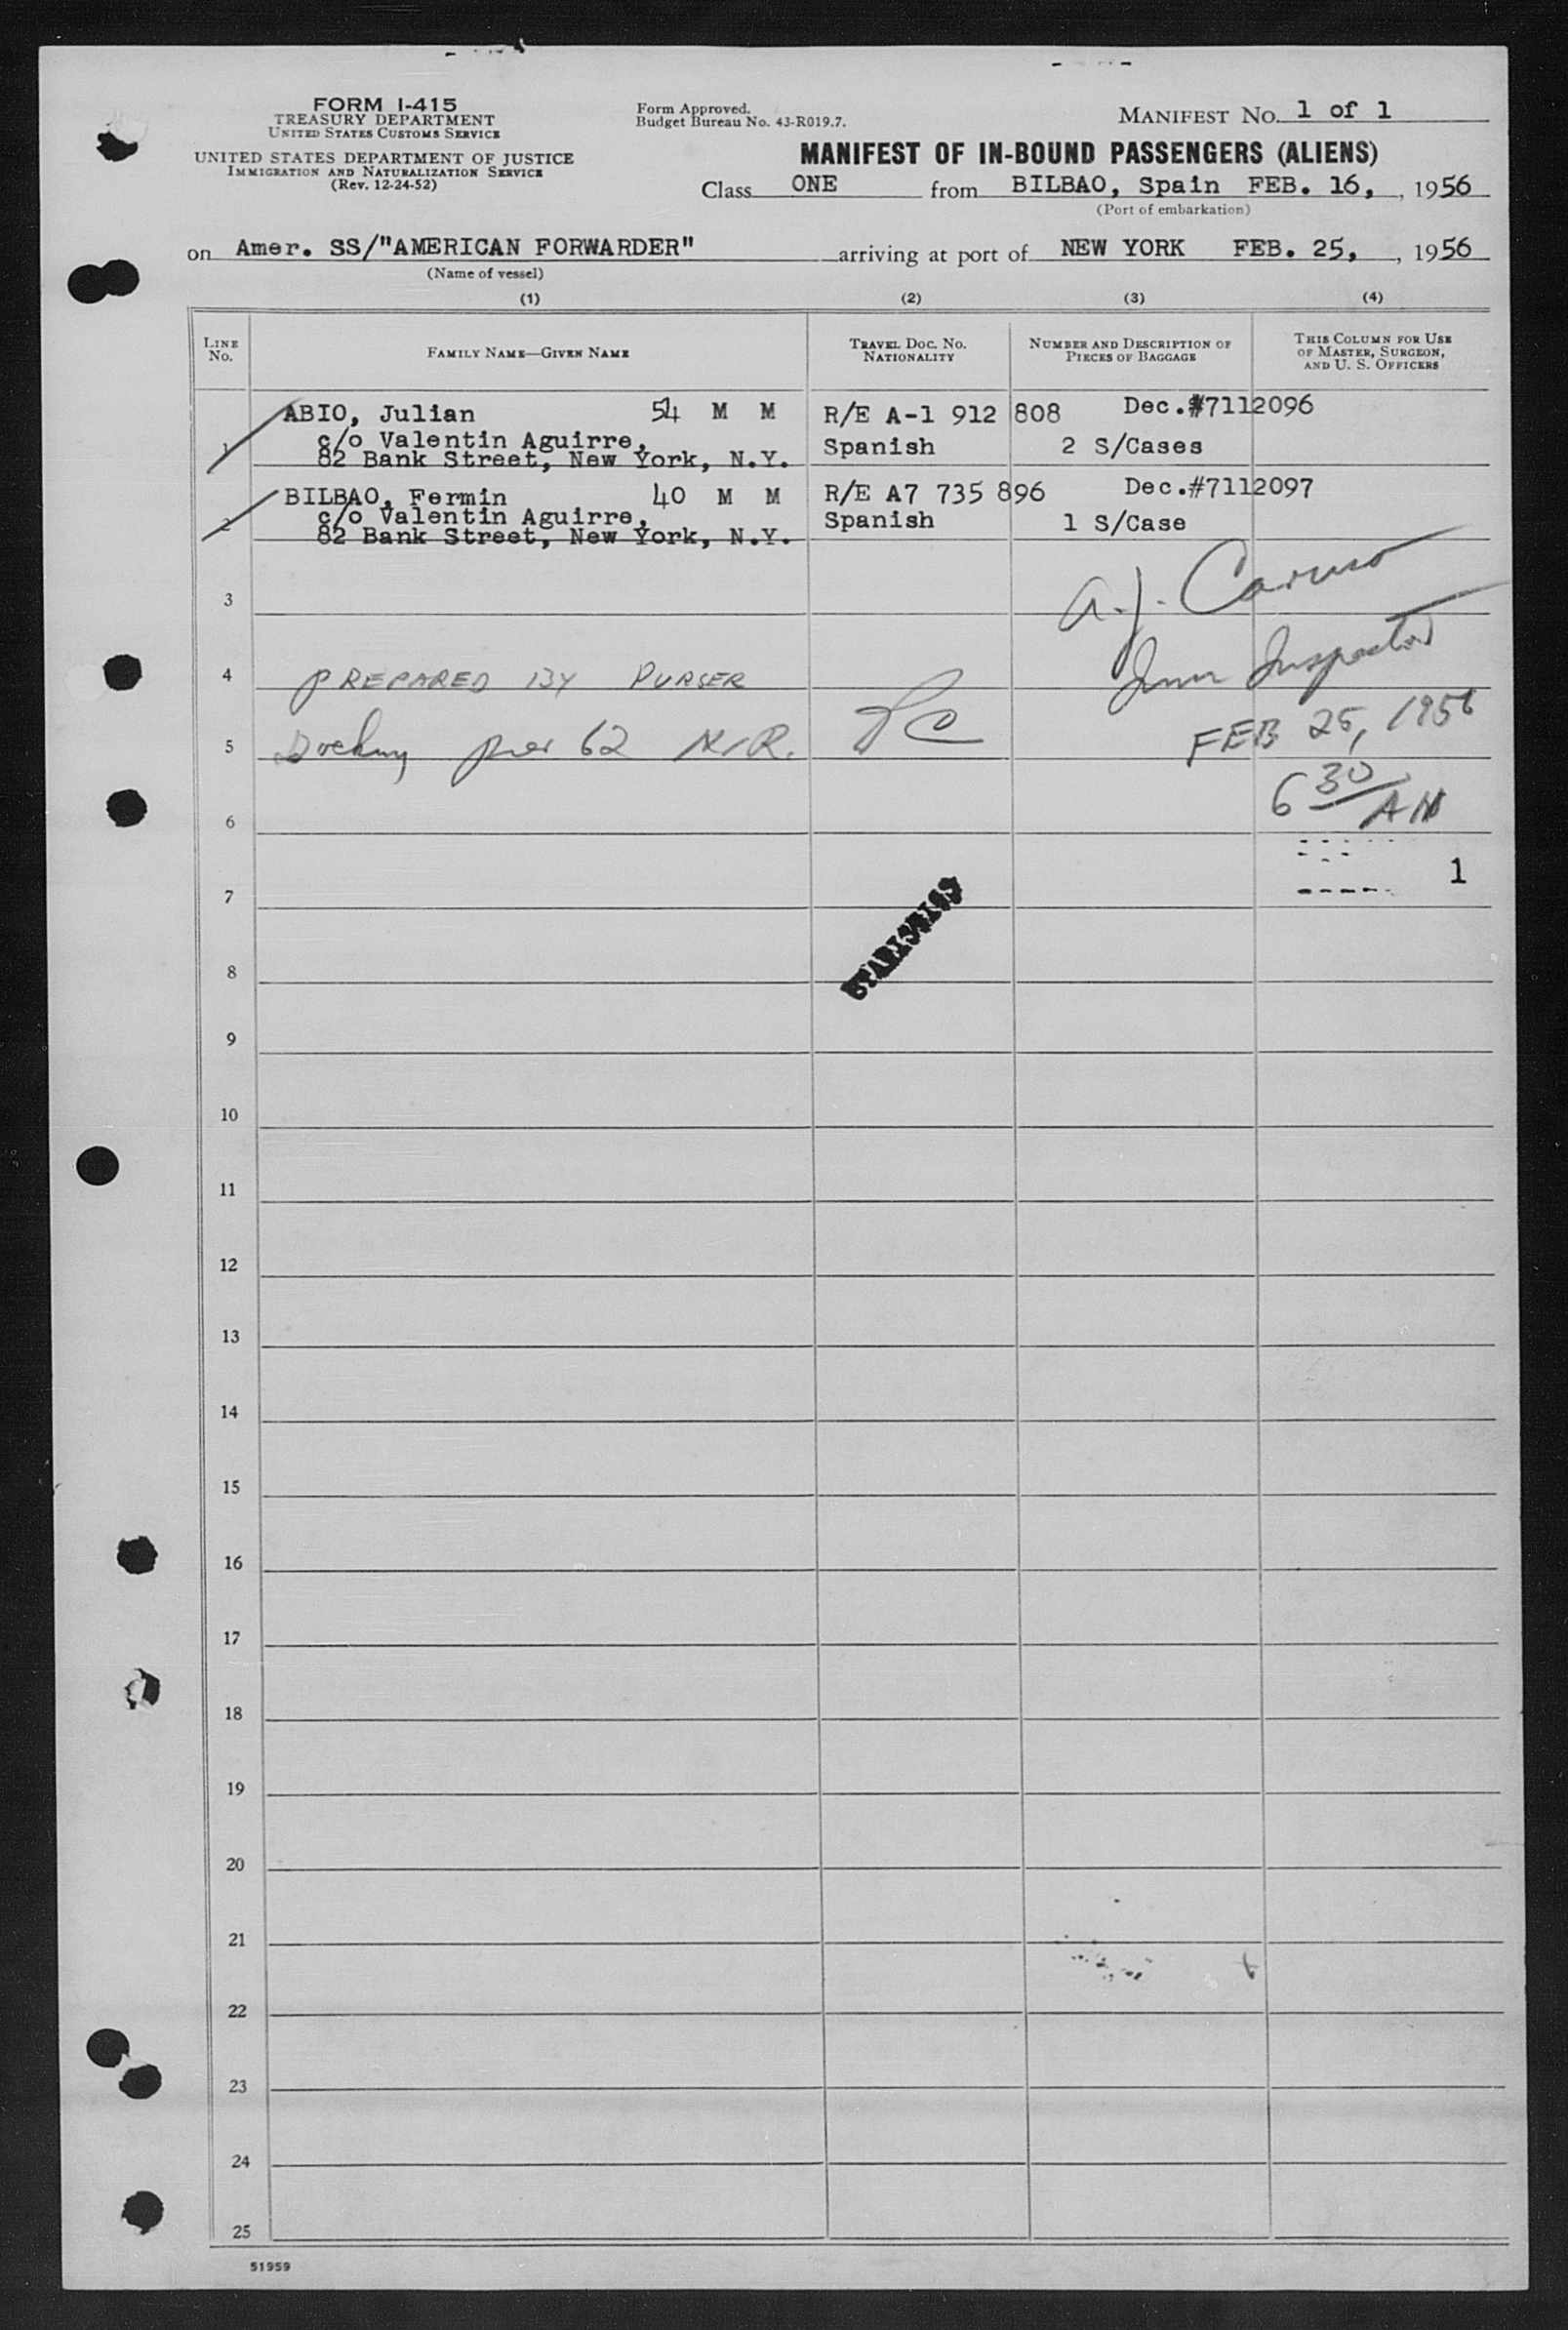 FORM I-415
TREASURY DEPARTMENT
UNITED STATES CUSTOMS SERVICE
UNITED STATES DEPARTMENT OF JUSTICE
IMMIGRATION AND NATURALIZATION SERVICE
(Rev. 12-24-52)
Form Approved.
Budget Bureau No. 43-R019.7.
MANIFEST NO. 1 of 1
MANIFEST OF IN-BOUND PASSENGERS (ALIENS)
Class ONE from BILBAO, Spain FEB. 16, , 1956
(Port of embarkation)
on Amer. SS/"AMERICAN FORWARDER" arriving at port of NEW YORK FEB. 25, , 1956
(Name of vessel)
(1) (2) (3) (4)
LINE NO.
FAMILY NAME—GIVEN NAME
TRAVEL DOC. NO. NATIONALITY
NUMBER AND DESCRIPTION OF PIECES OF BAGGAGE
THIS COLUMN FOR USE OF MASTER, SURGEON, AND U. S. OFFICERS
1 ABIO, Julian 54 M M R/E A-1 912 808 Dec.#7112096
c/o Valentin Aguirre, Spanish 2 S/Cases
82 Bank Street, New York, N.Y.
2 BILBAO, Fermin 40 M M R/E A7 735 896 Dec.#7112097
c/o Valentin Aguirre, Spanish 1 S/Case
82 Bank Street, New York, N.Y.
3 A.J. Caruso
4 PREPARED BY PURSER Imm Inspector
5 Docking pier 62 N.R. FEB 25, 1956
6 6 30/AM
7 1
8
9
10
11
12
13
14
15
16
17
18
19
20
21
22
23
24
25
51959